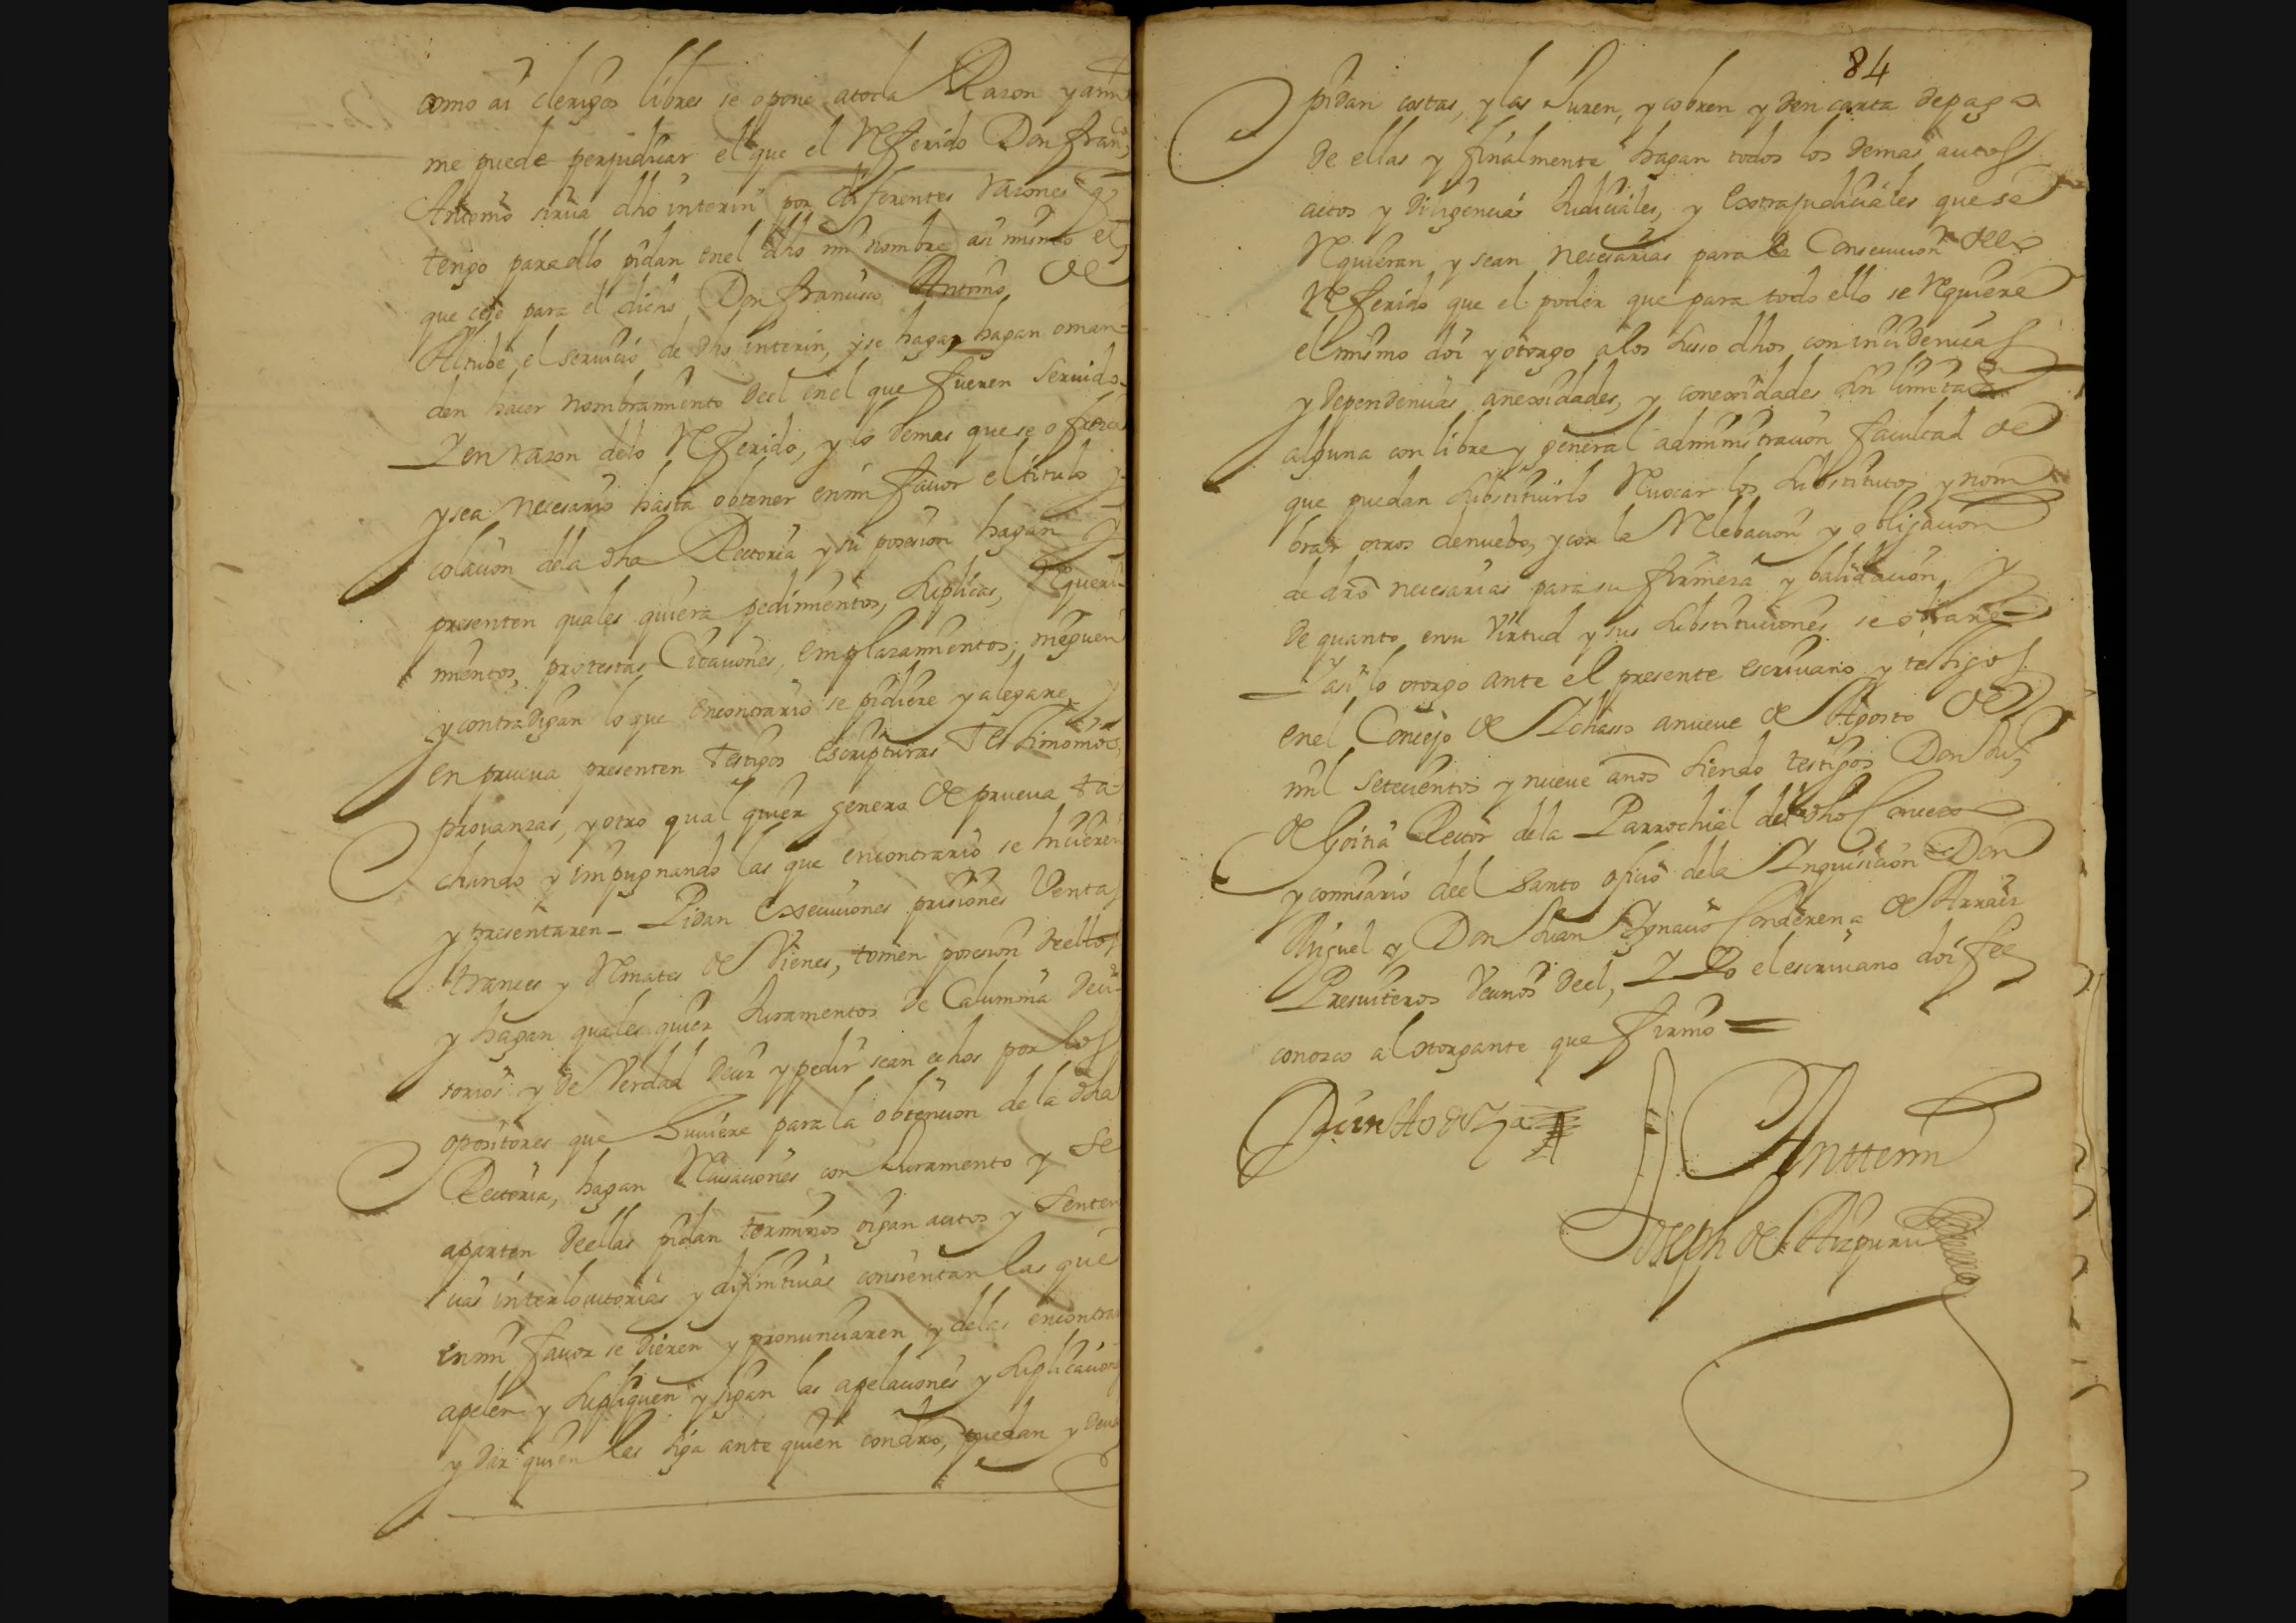 como asi clerigos libres se opone a toda Razon y aun
me puede perjudicar el que el Referido Don Franco
Antonio sirua dho interin por diferentes razones q
tengo para ello pidan en el dho mi nombre asi mismo el
que cese para el dicho Don Francisco Antonio de
Altube, el seruicio de dho interin, y se haga, hagan o man-
den hacer nombramiento deel en el que fueren seruidos
Y en razon delo Referido, y lo demas que se ofrezca
y sea necesario hasta obtener en mi fauor el titulo y
colacion dela dha Rectoria y su posesion hagan y
presenten quales quiera pedimientos, suplicas, Requeri-
mientos, protestas Citaciones, emplazamientos; nieguen
y contradigan lo que encontrario se pidiere y alegare, y
en prueua presenten testigos escripturas testimonios,
prouanzas, y otro qual quier genero de prueua ta-
chando y impugnando las que encontrario se hicieren
y presentaren_ Pidan Execuciones prisiones Ventas
trances y Remates de Vienes, tomen posesion deellos
y hagan quales quier Juramentos de Calumnia deci-
sorios y de Verdad decir y pedir sean echos por los
opositores que huuiere para la obtencion de la dha
Rectoria, hagan Recusaciones con Juramento y se
aparten deellas pidan terminos oigan autos y senten
cias interlocutorias y difinitiuas consientan las que
en mi fauor se dieren y pronunciaren y delas encontra
apelen y supliquen y sigan las apelaciones y suplicacion
y dar quien las siga ante quien con dro, puedan y deua
84
pidan costas, y las Juren, y cobren y den carta de pago
de ellas y finalmente hagan todos los demas autos
actos y diligencias Judiciales, y Extrajudiciales que se
Requieran y sean necesarias para la Consecucion dello
Referido que el poder que para todo ello se Requiere
el mismo doi y otorgo a los suso dhos con incidencias
y dependencias anexidades, y conexidades sin limitaon
alguna con libre y general administracion facultad de
que puedan substituirlo Reuocar los substitutos y nom
brar otros denuebo, y con la Relebacion y obligacion
de dro necesarias para su firmeza y balidacion, y
de quanto en su Virtud y sus substituciones se obrare
Y asi lo otorgo ante el presente escriuano y testigos
en el Concejo de Ichaso a nueue de Agosto de
mil setecientos y nueue años siendo testigos Don Juo
de Goitia Rector dela Parrochial del dho Concexo
y comisario deel Santo oficio dela Inquisicion Don
Miguel y Don Juan Ignacio de Arraiz
Presuiteros Vecinos deel, Y Yo el escriuano doi fee
conozco al otorgante que firmo =
Antemi
Joseph de Aizpuru